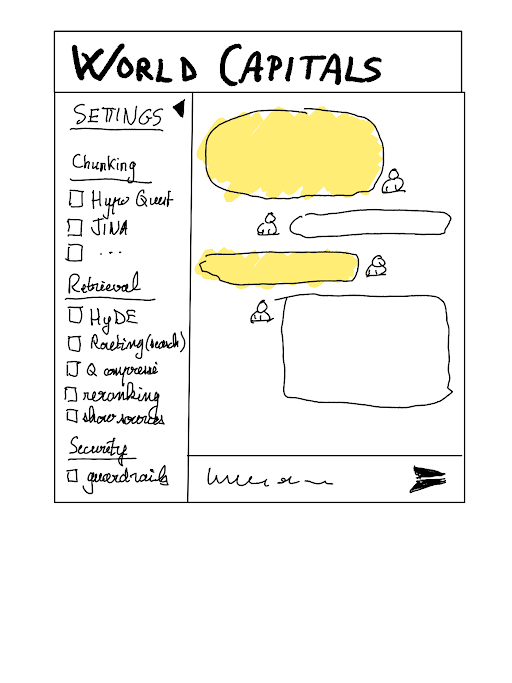 WORLD CAPITALS
SETTINGS
Chunking
Hypo Quest
JINA
...
Retrieval
HyDE
Routing (search)
Q compressé
reranking
show sources
Security
guardrails